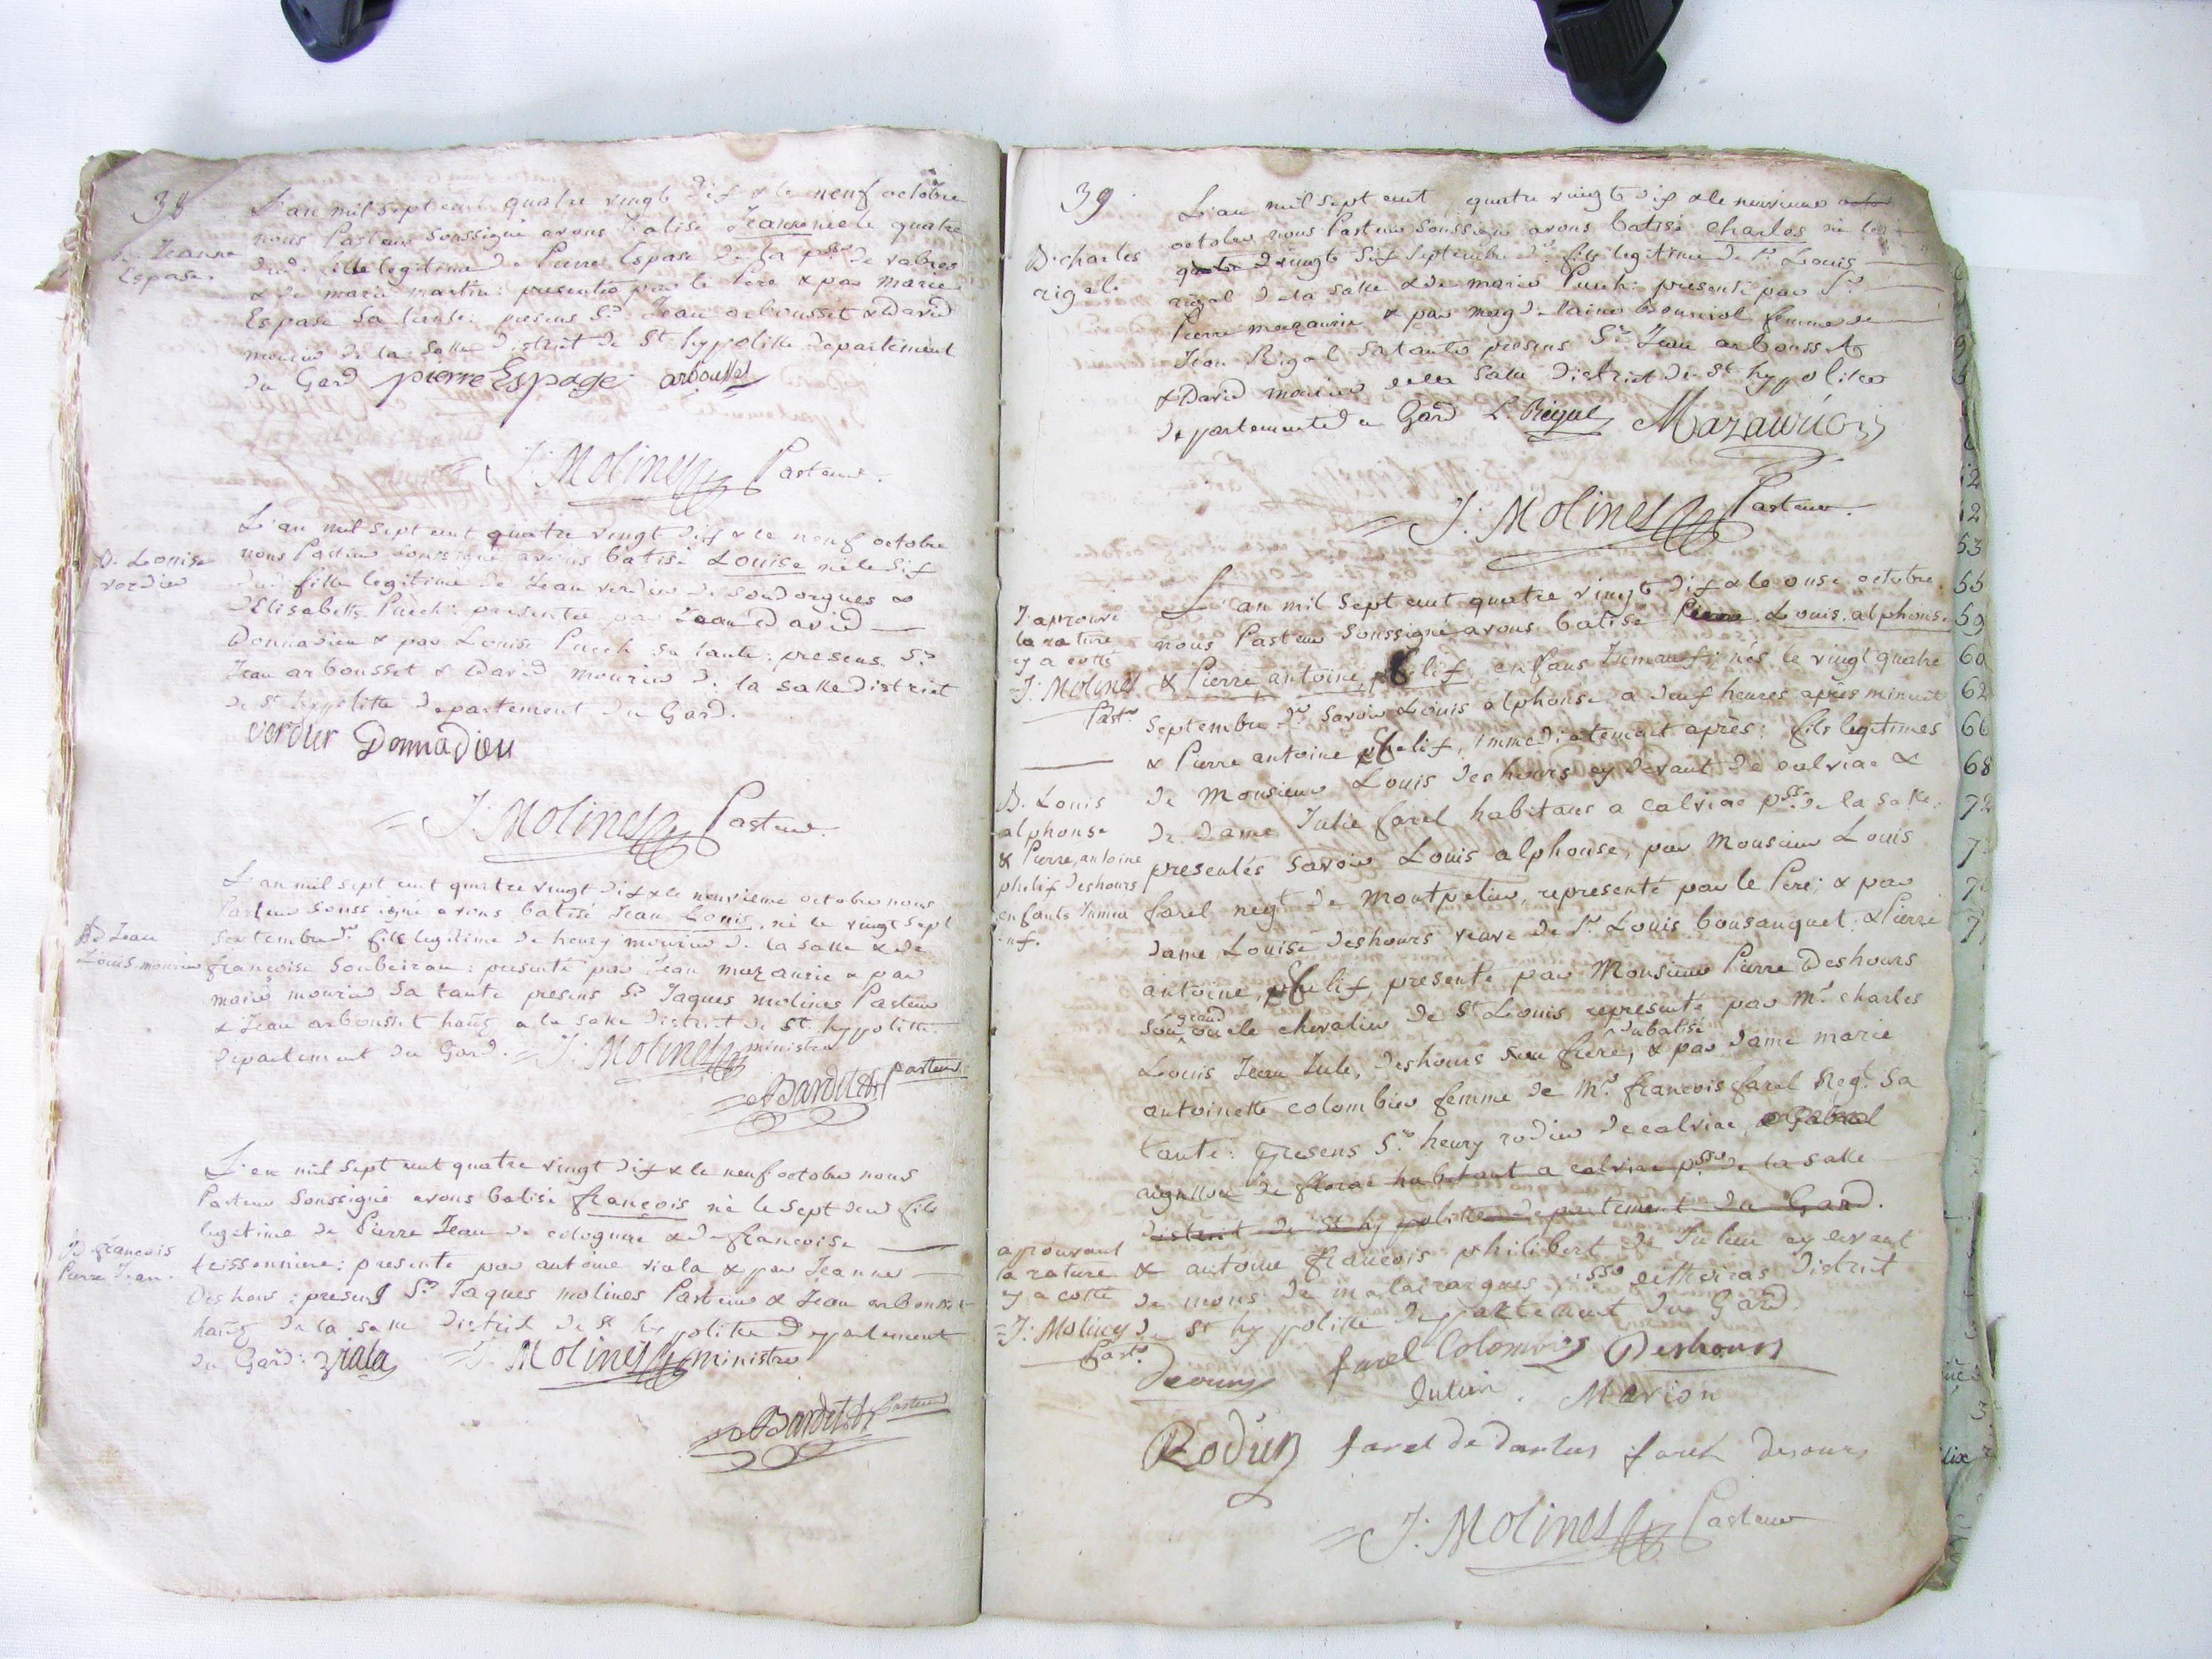 38
L'an mil sept cent quatre vingt dix & le neuf octobre
nous Pasteur soussigné avons batisé Jeanne née le quatre
dud. fille legitime de Pierre Espase de la psse de vabres
& de marie martin: presentée par le Pere & par marie
Espase sa tante: presens Srs Jean arbousset & David
mourier de la salle District de St hyppolitte departement
du Gard pierre Espaze arbousset
B. Jeanne
Espase.
J. Molines Pasteur.
L'an mil sept cent quatre vingt dix & le neuf octobre
nous Pasteur soussigné avons batisé Louise née le dix
dud. fille legitime de Jean verdier de soudorgues &
d'Elisabeth Puech: presentée par Jean David
Donnadieu & par Louise Puech sa tante: presens Srs
Jean arbousset & David mourier de la salle district
de St hyppolitte departement du Gard.
verdier Donnadieu
B. Louise
verdier
J. Molines Pasteur.
L'an mil sept cent quatre vingt dix & le neuvieme octobre nous
Pasteur soussigné avons batisé Jean Louis, né le vingt sept
septembre dr. fils legitime de henry mourier de la salle & de
françoise Soubeiran: presenté par Jean mazauric & par
marie mourier sa tante presens Srs Jaques molines Pasteur
& Jean arbousset hants a la salle District de St hyppolitte
departement du Gard. J. Molines ministre
B. Jean
Louis mourier
Barditet pasteur
L'an mil sept cent quatre vingt dix & le neuf octobre nous
Pasteur soussigné avons batisé françois né le sept dud fils
legitime de Pierre Jean de colognac & de françoise
teissonniere: presenté par antoine viala & par Jeanne
Deshons: presens Srs Jaques molines Pasteur & Jean arbousset
hants de la salle District de St hyppolitte Departement
du Gard: viala J. Molines ministre
B. francois
Pierre Jean.
Barditet Pasteur
39
L'an mil sept cent quatre vingt dix & le neuvieme
octobre nous Pasteur soussigné avons batisé charles né le
quatre vingt dix septembre dr. fils legitime de Sr Louis
rigal de la salle & de marie Puech: presenté par Sr
Pierre mazauric & par magdelaine Bourniol femme de
Jean Rigal sa tante presens Srs Jean arbousset
& David mourier de la salle District de St hyppolitte
departement du Gard L. Rigal Mazauric
B. charles
rigal.
J. Molines Pasteur.
L'an mil sept cent quatre vingt dix & le onse octobre
nous Pasteur soussigné avons batisé Pierre Louis alphonse
& Pierre, antoine, phelix, enfans Jumaux; nés le vingt quatre
septembre dr. savoir Louis alphonse a deux heures apres minuit
& Pierre antoine phelix, immediatement après; fils legitimes
de Monsieur Louis deshours cy devant de calviac &
de dame Julie farel habitans a calviac psse de la salle:
presentés savoir Louis alphonse, par Monsieur Louis
farel negt de Montpelier, representé par le Pere; & par
dame Louise deshours veuve de Sr Louis bousanquet. & Pierre
antoine, phelix, presenté par Monsieur Pierre Deshours
son grand oncle chevalier de St Louis, representé par Mr charles
Louis Jean Jule, deshours frere, du batisé & par dame marie
antoinette colombier femme de Mr francois farel Negt sa
tante: presens Srs henry rodier de calviac,
habitant a calviac psse de la salle
district de St hyppolitte departement du Gard.
& antoine françois philibert de Julien cy devant
de mons: de malairargues District
de St hyppolitte departement du Gard.
J'aprouve
la rature
cy a cotté
J. Molines
Pastr
B. Louis
alphonse
& Pierre, antoine
phelix deshours
enfants Jumeaux.
aprouvant
la rature
cy a cotté
J. Molines
Pastr
farel Colombies Deshours
Julien. Marion
Rodier farel farel desours
J. Molines Pasteur
12
12
53
55
59
60
62
66
68
72